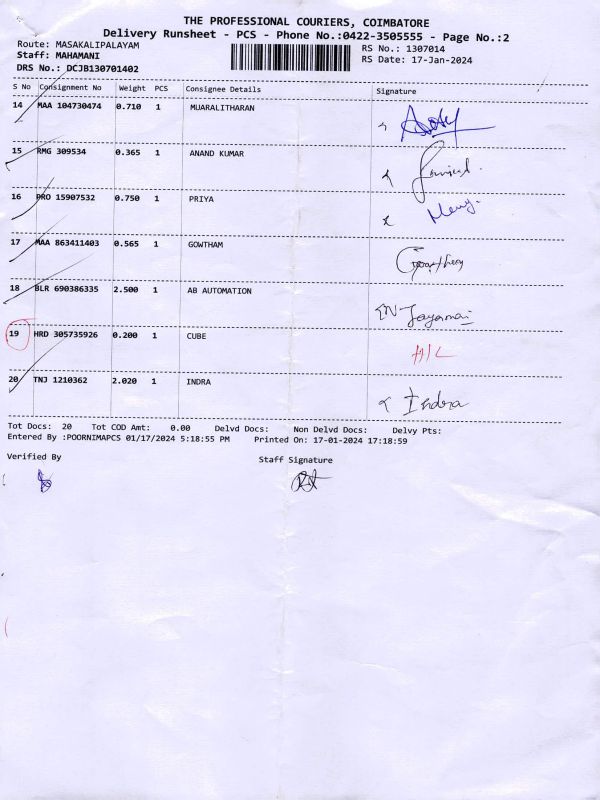 THE PROFESSIONAL COURIERS, COIMBATORE
Delivery Runsheet - PCS - Phone No.:0422-3505555 - Page No.:2
Route: MASAKALIPALAYAM
Staff: MAHAMANI
DRS No.: DCJB130701402
RS No.: 1307014
RS Date: 17-Jan-2024
S No Consignment No Weight PCS Consignee Details Signature
14 MAA 104730474 0.710 1 MUARALITHARAN
15 RMG 309534 0.365 1 ANAND KUMAR
16 PRO 15907532 0.750 1 PRIYA
17 MAA 863411403 0.565 1 GOWTHAM
18 BLR 690386335 2.500 1 AB AUTOMATION
19 HRD 305735926 0.200 1 CUBE
20 TNJ 1210362 2.020 1 INDRA Indra
Tot Docs: 20 Tot COD Amt: 0.00 Delvd Docs: Non Delvd Docs: Delvy Pts:
Entered By :POORNIMAPCS 01/17/2024 5:18:55 PM Printed On: 17-01-2024 17:18:59
Verified By Staff Signature